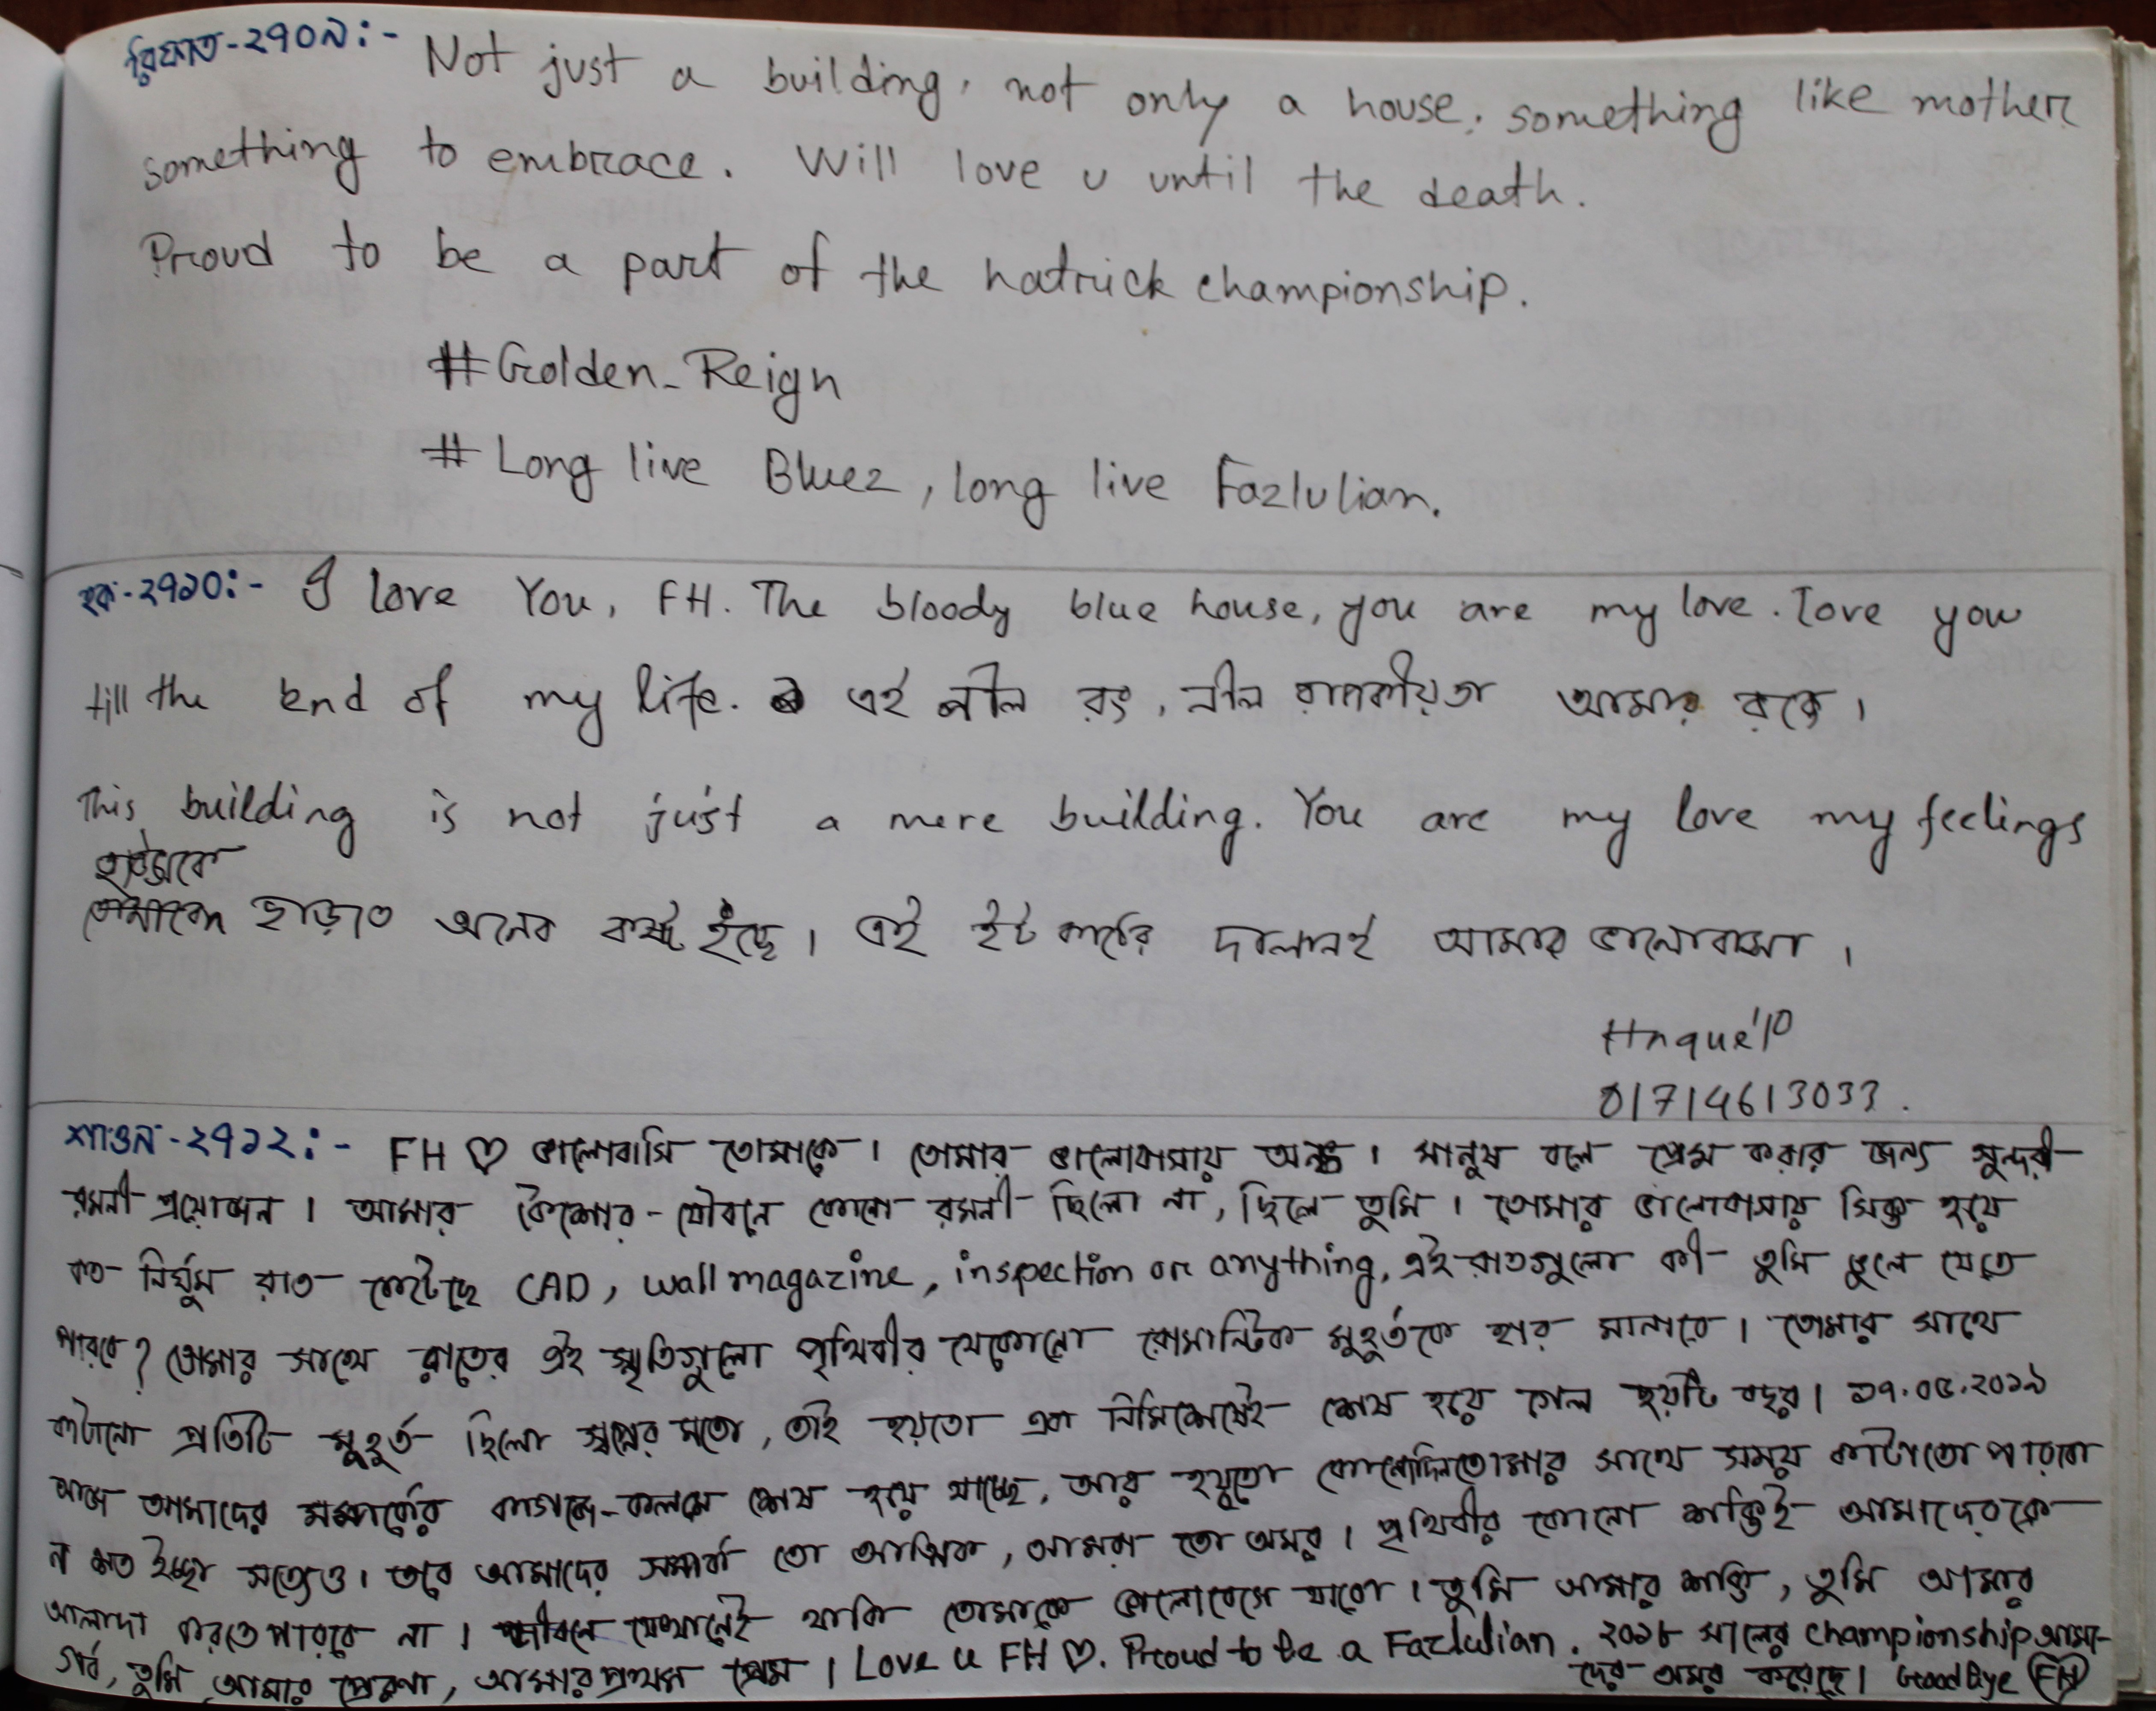 রিফাত-২৭০৯:- Not just a building, not only a house, something like mother
something to embrace. Will love u until the death.
Proud to be a part of the hatrick championship.
#Golden_Reign
# Long live Bluez, long live Fazlulian.
হক-২৭১০:- I love You, FH. The bloody blue house, you are my love. Love you
till the end of my life. এই নীল রং, নীল আমার রক্তে।
This building is not just a mere building. You are my love my feelings
হাউজকে
ছাড়তে অনেক কষ্ট হচ্ছে। এই ইট কাঠের দালানই আমার ভালোবাসা।
Haque'10
01714613033.
শাওন-২৭১২:- FH ♡ ভালোবাসি তোমাকে। তোমার ভালোবাসায় অন্ধ। মানুষ বলে প্রেম করার জন্য সুন্দরী
রমনী প্রয়োজন। আমার কৈশোর-যৌবনে কোনো রমনী ছিলো না, ছিলে তুমি। তোমার ভালোবাসায় সিক্ত হয়ে
কত নির্ঘুম রাত কেটেছে CAD, wall magazine, inspection or anything, এই রাতগুলো কী তুমি ভুলে যেতে
পারবে? তোমার সাথে রাতের এই স্মৃতিগুলো পৃথিবীর যেকোনো রোমান্টিক মুহূর্তকে হার মানাবে। তোমার সাথে
কাটানো প্রতিটি মুহূর্ত ছিলো স্বপ্নের মতো, তাই হয়তো এক নিমিশেষেই শেষ হয়ে গেল ছয়টি বছর। ১৭.০৫.২০১৯
আজ আমাদের সম্পর্কের কাগজে-কলমে শেষ হয়ে যাচ্ছে, আর হয়তো কোনোদিন তোমার সাথে সময় কাটাতে পারবো
না শত ইচ্ছা সত্যেও। তবে আমাদের সম্পর্ক তো আত্মিক, আমরা তো অমর। পৃথিবীর কোনো শক্তিই আমাদেরকে
আলাদা করতে পারবে না। জীবনে যেখানেই থাকি তোমাকে ভালোবেসে যাবো। তুমি আমার শক্তি, তুমি আমার
গর্ব, তুমি আমার প্রেরণা, আমার প্রথম প্রেম। Love u FH ♡. Proud to be a Fazlulian. ২০১৮ সালের championship আমা-
দের অমর করেছে। Goodbye FH